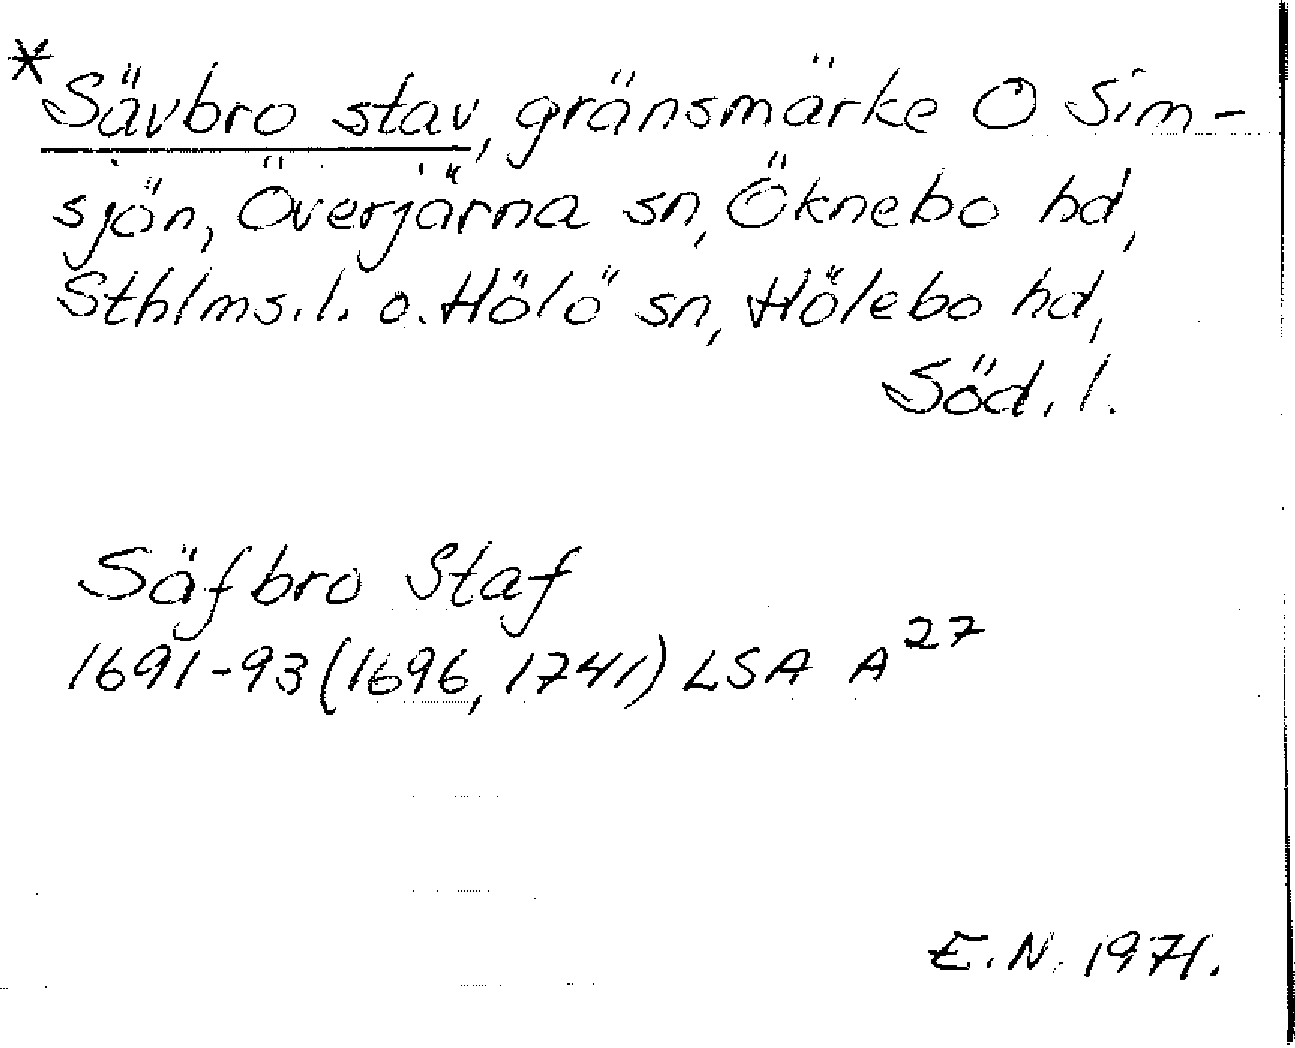 *Sävbro stav, gränsmärke O Sim-
sjön, Överjärna sn, Öknebo hd,
Sthlms. l. o. Hölö sn, Hölebo hd,
Söd. l.
Säfbro Staf
1691-93 (1696, 1741) LSA A 27
E. N. 1971.